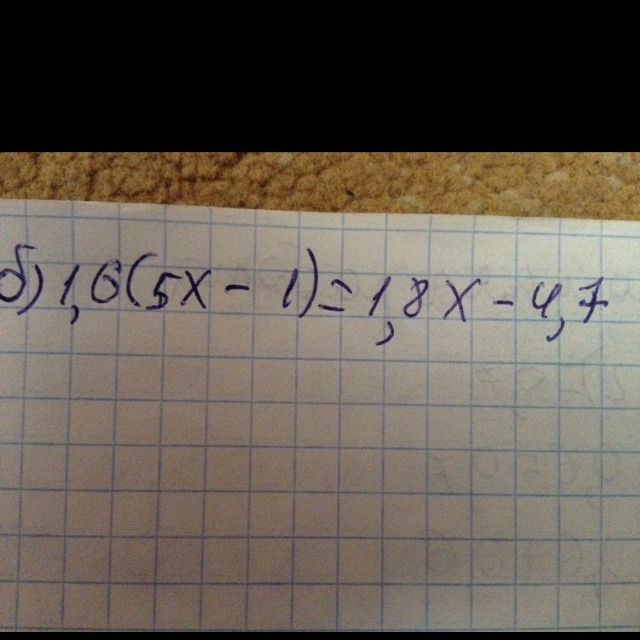 б) 1,6(5x - 1) = 1,8x - 4,7